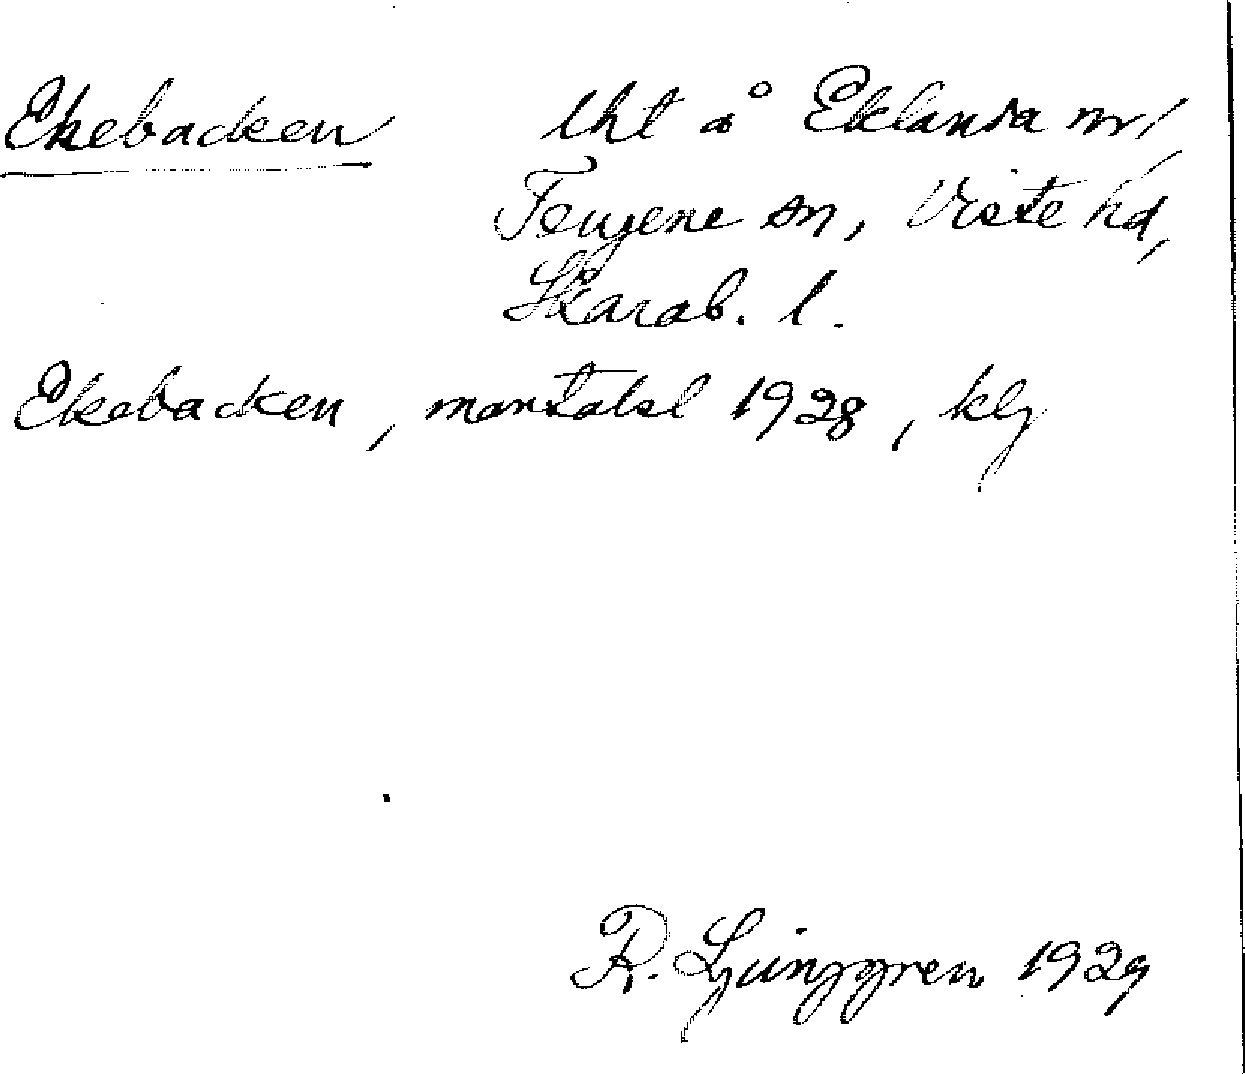 Ekebacken lht å Eklanda nr 1,
Fengene sn, Viste hd,
Skarab. l.
Ekebacken, mantalsl 1928, klg
R. Ljunggren 1929